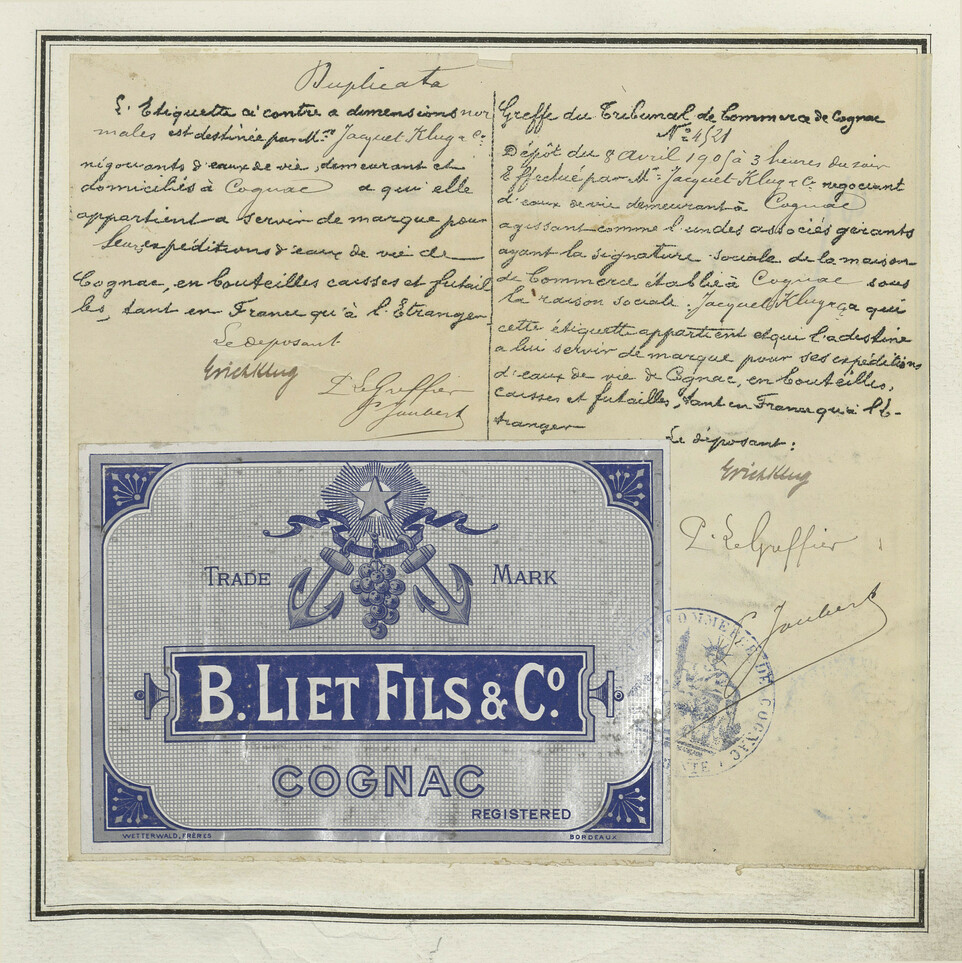 Duplicata
L'Etiquette ci contre a dimensions nor
males est destinée par M.rs Jacquet Klug & Cie
négociants d'eaux de vie, demeurant et
domiciliés à Cognac a qui elle
appartient a servir de marque pour
leurs expéditions d'eaux de vie de
Cognac, en bouteilles caisses et futail
les, tant en France qu'à l'Etranger
Le deposant
Erich Klug
P. Le Greffier
Joubert
Greffe du Tribunal de Commerce de Cognac
N° 4521
Dépôt du 8 avril 1905 à 3 heures du soir
Effectué par Mrs Jacquet Klug & Cie negociant
d'eaux de vie demeurant à Cognac
agissant comme l'un des associés gérants
ayant la signature sociale de la maison
de Commerce établie à Cognac sous
la raison sociale: Jacquet Klug & Ca qui
cette étiquette appartient et qui l'a destine
a lui servir de marque pour ses expéditions
d'eaux de vie de Cognac, en bouteilles,
caisses et futailles, tant en France qu'à l'E-
tranger
Le déposant:
Erich Klug
P. Le Greffier
Joubert
COMMERCE DE COGNAC
TRADE MARK
B. LIET FILS & Co.
COGNAC
REGISTERED
WETTERWALD, FRÈRES
BORDEAUX